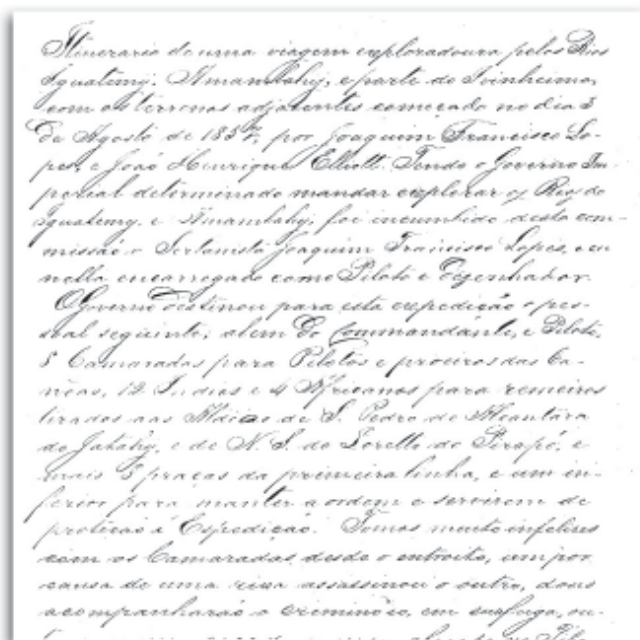 Itinerario de uma viagem exploradoura pelos Rios
Iguatemy, Amambahy, e parte do Ivinheima,
com os terrenos adjacentes começado no dia 8
de Agosto de 1857, por Joaquim Francisco Lo-
pes, e João Henrique Elliott. Tendo o Governo Im-
perial determinado mandar explorar os Rios do
Iguatemy e Amambahy, foi incumbido desta com-
missão o Sertanista Joaquim Francisco Lopes, e eu
nella encarregado como Piloto e Dezenhador.
O Governo destinou para esta expedição o pes-
soal seguinte, alem do Commandante, e Piloto,
8 Camaradas para Pilotos e proeiros das Ca-
nôas, 12 Indios e 4 Africanos para remeiros
tirados nas Aldêas de S. Pedro de Alcantára
do Jatahy, e de N. S. do Loretto do Pirapó, e
mais 8 praças da primeira linha, e um in-
ferior para manter a ordem e servirem de
proteção á Expedição. Fomos muito infelizes
com os Camaradas desde o entroito, um por
causa de uma rixa assassinou o outro, dous
acompanharão o criminôso, em sua fuga, ou-